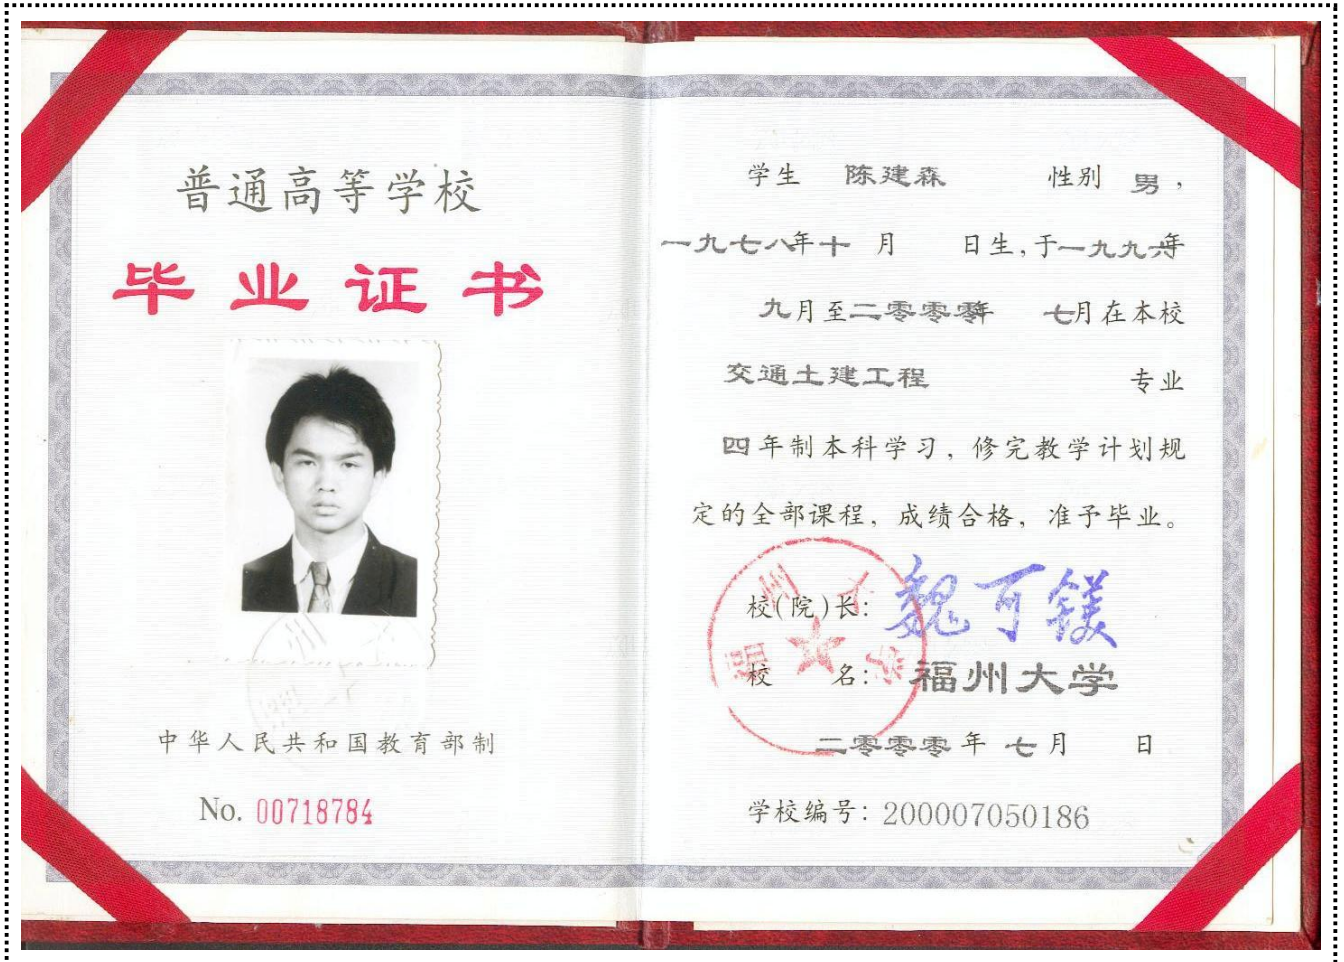 普通高等学校
毕业证书
中华人民共和国教育部制
No. 00718784
学生 陈建森 性别 男，
一九七八年十 月 日生，于一九九六年
九月至二零零零年 七月在本校
交通土建工程 专业
四年制本科学习，修完教学计划规
定的全部课程，成绩合格，准予毕业。
校(院)长： 魏可镁
校 名： 福州大学
二零零零 年 七 月 日
学校编号：200007050186
福州大学